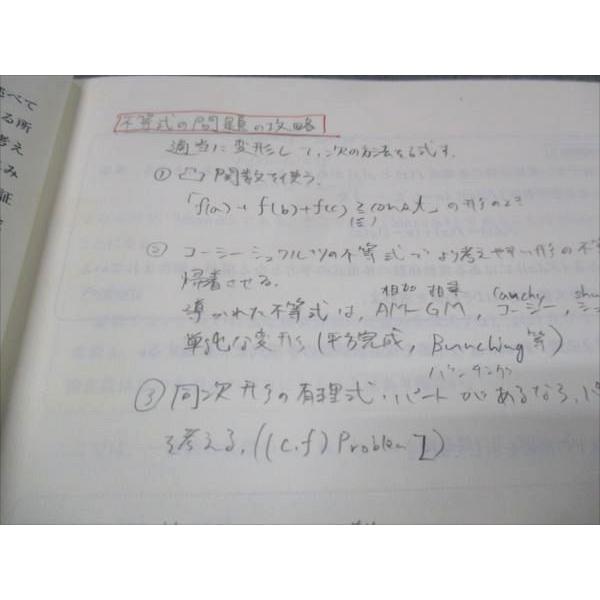 べて
る所
考え
み
証
不等式の問題の攻略
適当に変形して、次の方法を試す。
① 凸関数を使う。
「f(a)+f(b)+f(c) ≧ const」の形のとき
(≦)
② コーシーシュワルツの不等式でより考えやすい形の不
帰着させる。
相加 相乗 Cauchy shu
導かれた不等式は、AM-GM, コーシー, シュ
単純な変形(平方完成, Bunching等)
バンチング
③ 同次形の有理式・パートがあるなら、
を考える。((c.f) Problem 2)